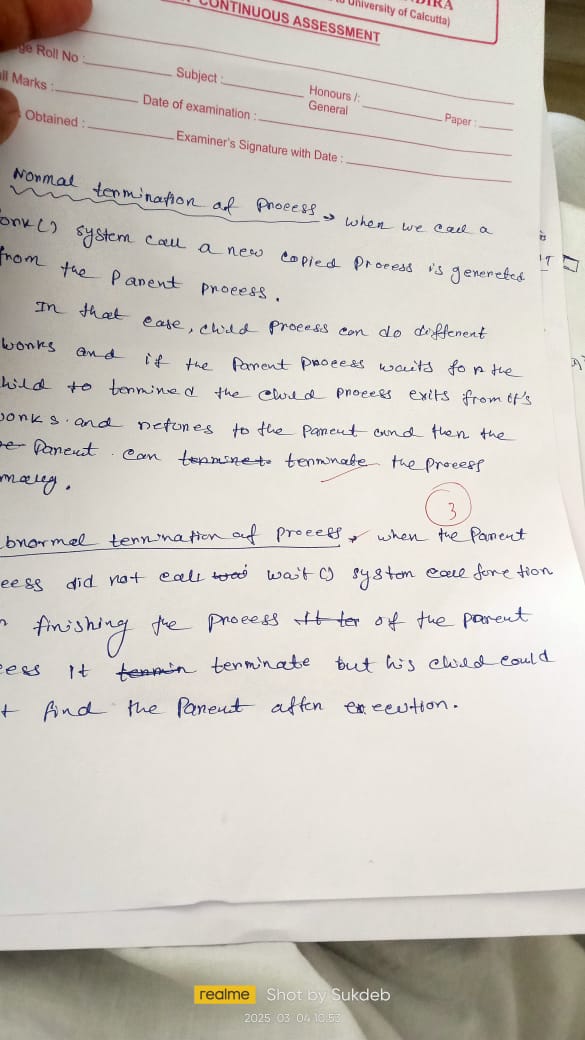 CONTINUOUS ASSESSMENT
University of Calcutta)
ge Roll No :
Subject :
Honours /:
General
Paper :
ll Marks :
Date of examination :
Obtained :
Examiner's Signature with Date :
Normal termination of Process → when we call a
ork() system call a new copied Process is genereted
from the Parent process.
In that case, child process can do different
works and if the Parent process waits for the
hild to termined the child process exits from it's
orks and returnes to the parent and then the
Parent can terminate the process
maley.
3
bnormal termination of process, when the Parent
cess did not call wait() system call function
finishing the process of the parent
cess It termin terminate but his child could
t find the Parent after execution.
realme Shot by Sukdeb
2025/03/04 10:53